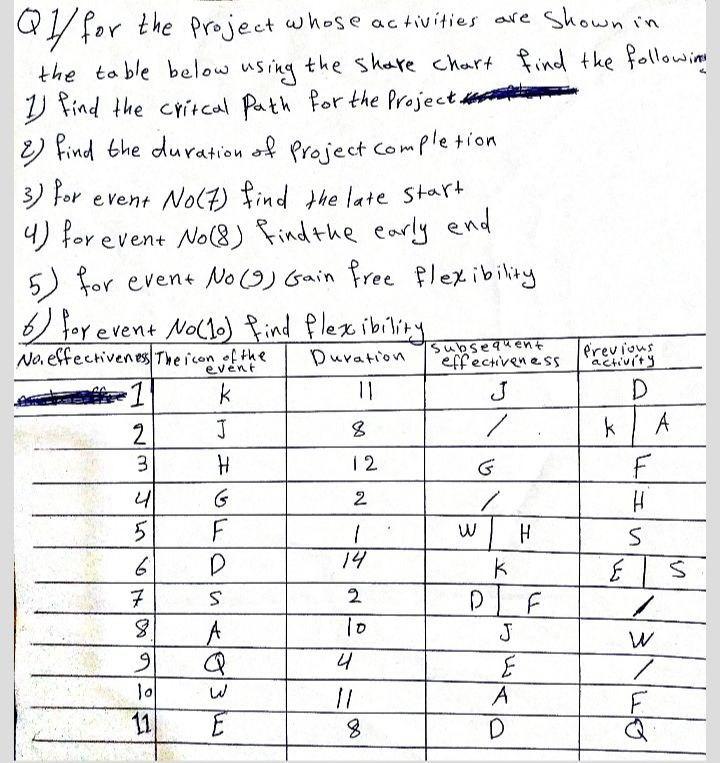 Q1/ for the Project whose activities are Shown in
the table below using the share chart find the following
1) find the critcal Path for the Project
2) find the duration of Project completion
3) for event No(7) find the late start
4) for event No(8) find the early end
5) for event No(9) Gain free flexibility
6) for event No(10) find flexibility
No. effectiveness The icon of the event Duration Subsequent effectiveness Previous activity
1 K 11 J D
2 J 8 / K A
3 H 12 G F
4 G 2 / H
5 F 1 W H S
6 D 14 K E S
7 S 2 D F /
8 A 10 J W
9 Q 4 E /
10 W 11 A F
11 E 8 D Q